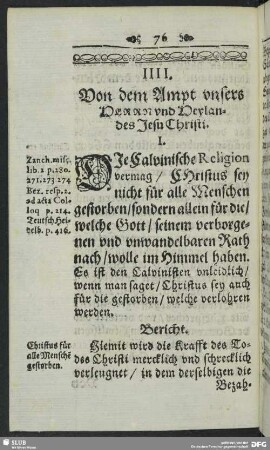 76
IIII.
Von dem Ampt vnsers
HERRN vnd Heylan-
des Jesu Christi.
I.
DIe Calvinische Religion
vermag / CHristus sey
nicht für alle Menschen
gestorben / sondern allein für die /
welche Gott / seinem verborge-
nen vnd vnwandelbaren Rath
nach / wolle im Himmel haben.
Es ist den Calvinisten vnleidlich /
wenn man saget / Christus sey auch
für die gestorben / welche verlohren
werden.
Zanch. misc.
lib. 2 p. 280.
271. 273 274
Bez. resp. 2.
ad acta Col-
loq p. 214.
Teutsch. Hei-
delb. p. 416.
Bericht.
Christus für
alle Mensche
gestorben.
Hiemit wird die Krafft des To-
des Christi mercklich vnd schrecklich
verleugnet / in dem derselbigen die
Bezah-
SLUB